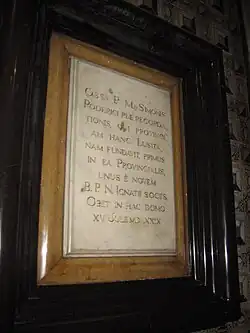 OSSA P. M. SIMONIS
RODERICI PIÆ RECORDA
TIONIS, QVI PROVINCI
AM HANC LUSITA
NAM FUNDAVIT, PRIMUS
IN EA PROVINCIALIS,
UNUS È NOVEM
B. P. N. IGNATII SOCIIS.
OBIIT IN HAC DOMO
XV JULII MDLXXIX